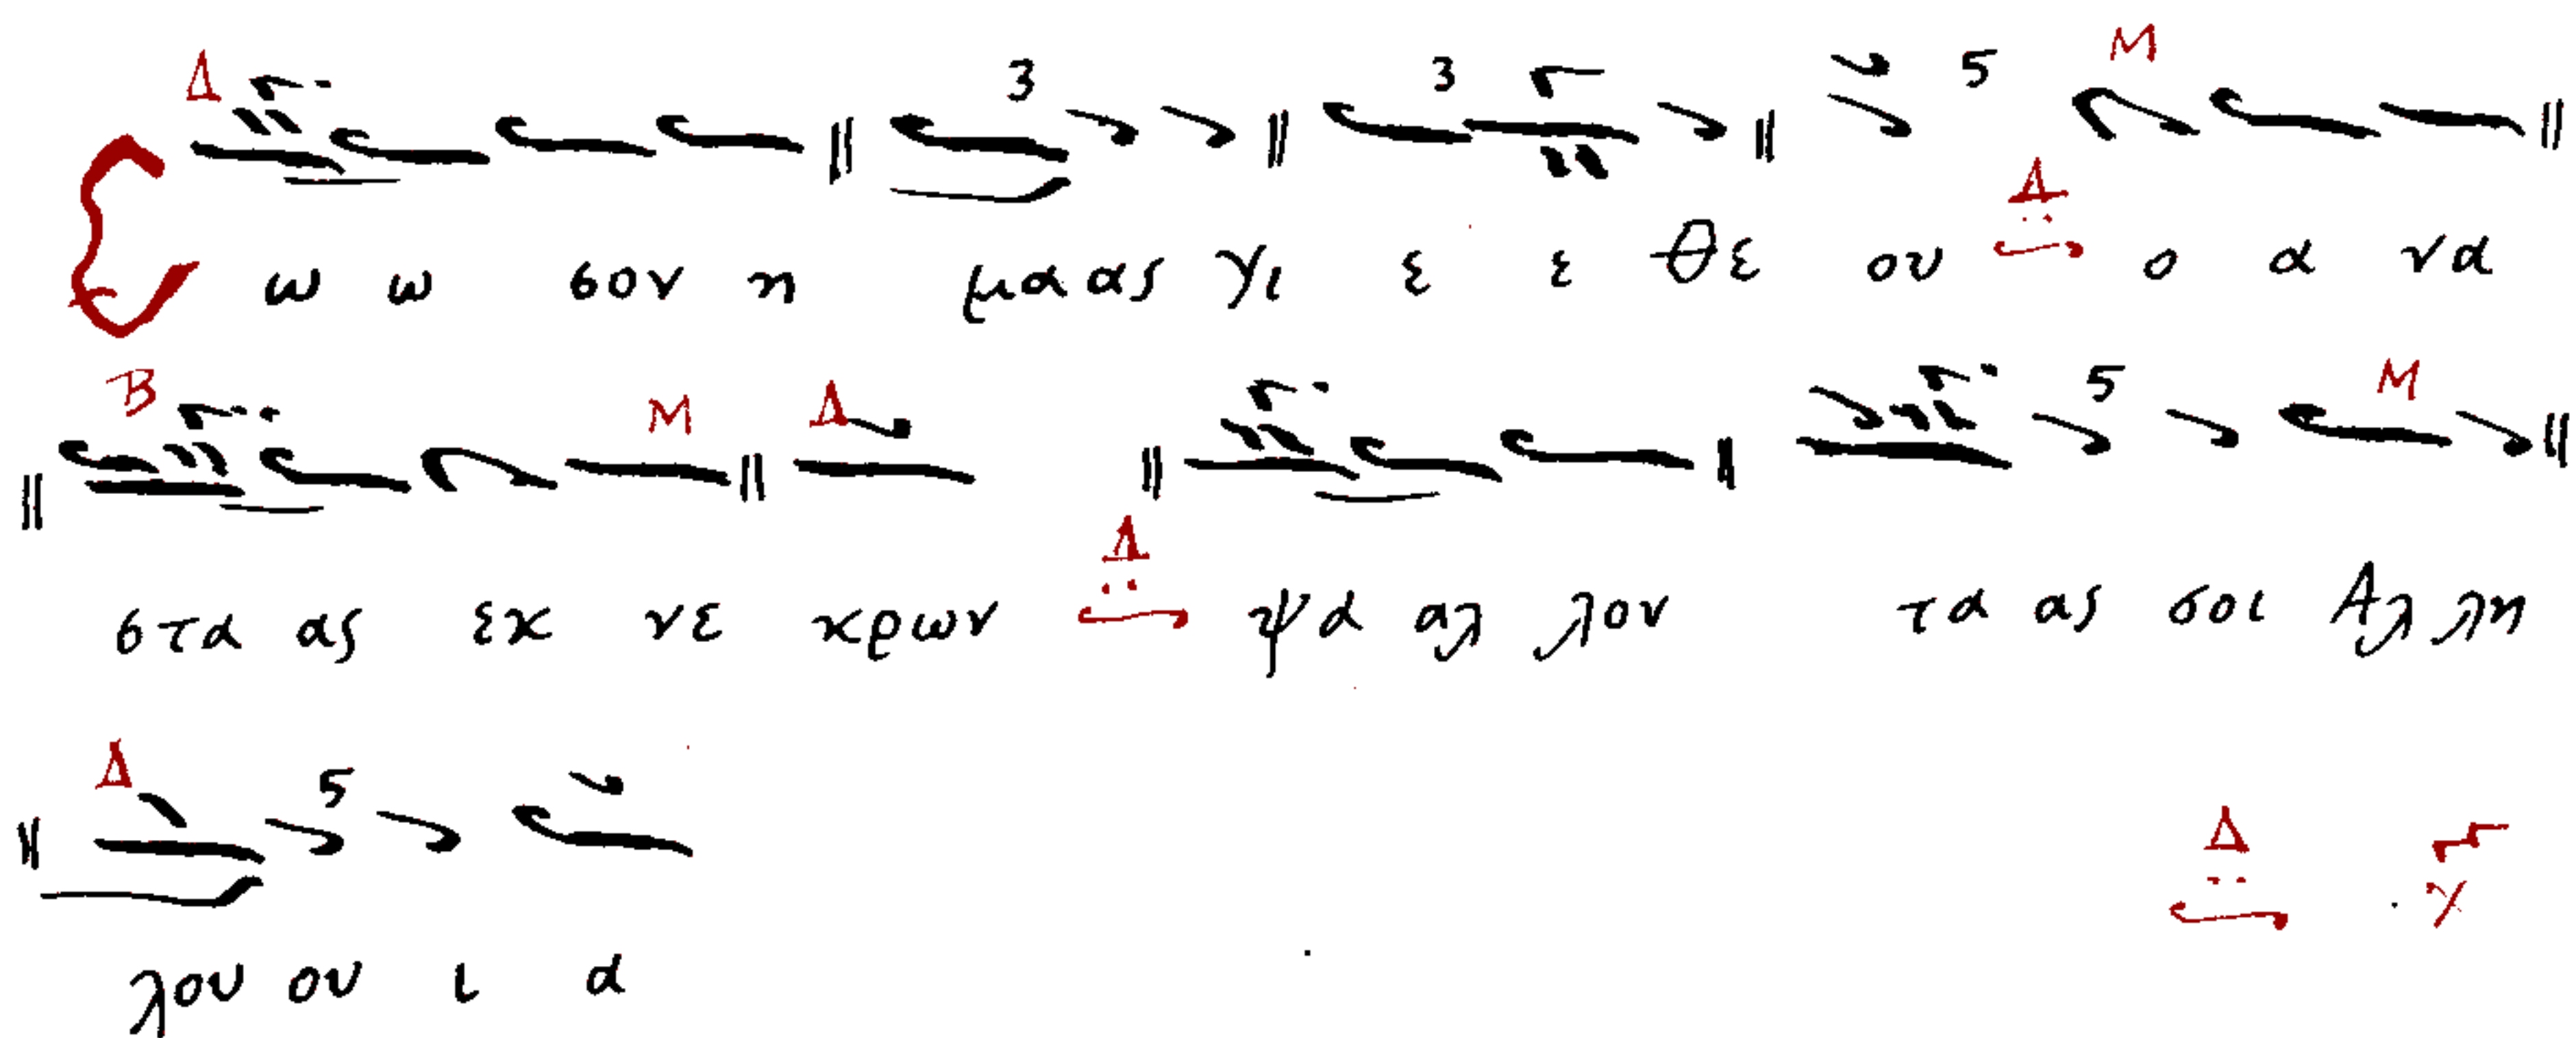 Δ 3 3 5 Μ
Σω ω σον η μα ας γι ε ε θε ου Δ ο α να
Β Μ Δ 5 Μ
στα ας εκ νε κρων Δ ψα αλ λον τα ας σοι Αλ λη
Δ 5 Δ
λου ου ι α